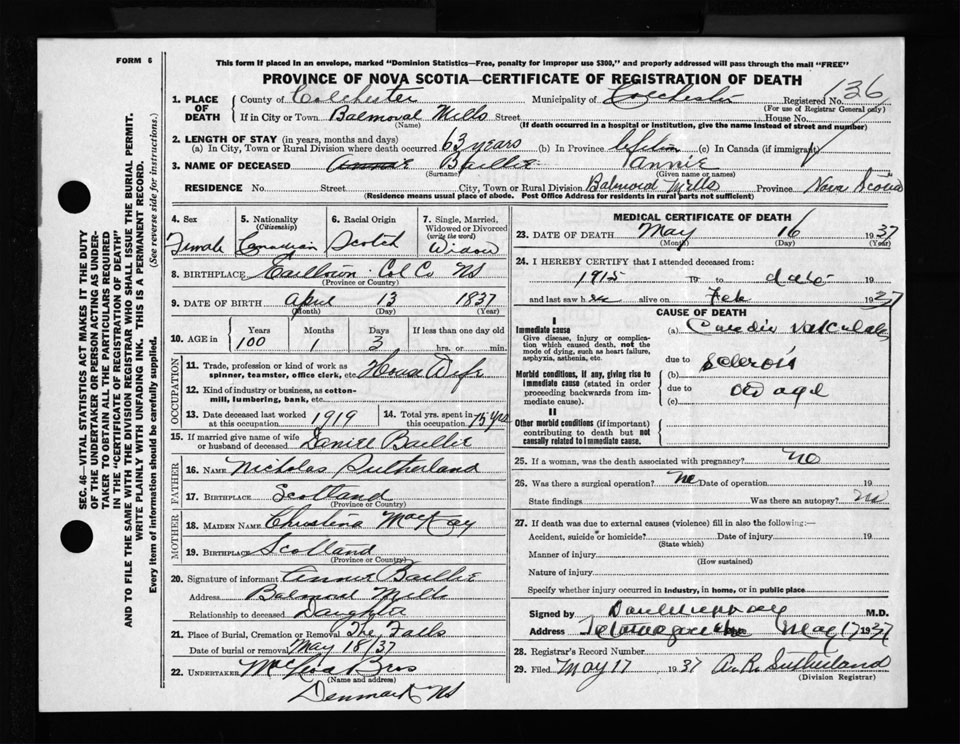 FORM 6
This form if placed in an envelope, marked "Dominion Statistics—Free, penalty for improper use $300," and properly addressed will pass through the mail "FREE"
PROVINCE OF NOVA SCOTIA—CERTIFICATE OF REGISTRATION OF DEATH
136
1. PLACE OF DEATH
County of Colchester Municipality of Colchester Registered No.
(For use of Registrar General only)
If in City or Town Balmoral Mills Street House No.
(Name) (If death occurred in a hospital or institution, give the name instead of street and number)
2. LENGTH OF STAY (in years, months and days)
(a) In City, Town or Rural Division where death occurred 63 years (b) In Province life (c) In Canada (if immigrant)
3. NAME OF DECEASED Annie Baillie Annie
(Surname) (Given name or names)
RESIDENCE No. Street City, Town or Rural Division Balmoral Mills Province Nova Scotia
(Residence means usual place of abode. Post Office Address for residents in rural parts not sufficient)
SEC. 46—VITAL STATISTICS ACT MAKES IT THE DUTY
OF THE UNDERTAKER OR PERSON ACTING AS UNDER-
TAKER TO OBTAIN ALL THE PARTICULARS REQUIRED
IN THE "CERTIFICATE OF REGISTRATION OF DEATH"
AND TO FILE THE SAME WITH THE DIVISION REGISTRAR WHO SHALL ISSUE THE BURIAL PERMIT.
WRITE PLAINLY WITH UNFADING INK. THIS IS A PERMANENT RECORD.
Every item of information should be carefully supplied. (See reverse side for instructions.)
4. Sex 5. Nationality (Citizenship) 6. Racial Origin 7. Single, Married, Widowed or Divorced (write the word)
Female Canadian Scotch Widow
8. BIRTHPLACE Earltown Col Co NS
(Province or Country)
9. DATE OF BIRTH April 13 1837
(Month) (Day) (Year)
10. AGE in Years Months Days If less than one day old
100 1 3 hrs. or min.
OCCUPATION
11. Trade, profession or kind of work as spinner, teamster, office clerk, etc. House Wife
12. Kind of industry or business, as cotton-mill, lumbering, bank, etc.
13. Date deceased last worked at this occupation 1919 14. Total yrs. spent in 75 yrs
15. If married give name of wife or husband of deceased Daniel Baillie
FATHER
16. NAME Nicholas Sutherland
17. BIRTHPLACE Scotland
(Province or Country)
MOTHER
18. MAIDEN NAME Christina MacKay
19. BIRTHPLACE Scotland
(Province or Country)
20. Signature of informant Annie Baillie
Address Balmoral Mills
Relationship to deceased Daughter
21. Place of Burial, Cremation or Removal The Falls
Date of burial or removal May 18/37
22. UNDERTAKER Bros
(Name and address)
Denmark NS
MEDICAL CERTIFICATE OF DEATH
23. DATE OF DEATH May 16 1937
(Month) (Day) (Year)
24. I HEREBY CERTIFY that I attended deceased from:
1915 to date 19
and last saw her alive on Feb 1937
CAUSE OF DEATH
I
Immediate cause
Give disease, injury or complication which caused death, not the mode of dying, such as heart failure, asphyxia, asthenia, etc.
(a) Cardio Vascular
due to
Morbid conditions, if any, giving rise to immediate cause (stated in order proceeding backwards from immediate cause).
(b) Sclerosis
due to
(c) old age
II
Other morbid conditions (if important) contributing to death but not causally related to immediate cause.
25. If a woman, was the death associated with pregnancy? no
26. Was there a surgical operation? no Date of operation 19
State findings Was there an autopsy? no
27. If death was due to external causes (violence) fill in also the following:—
Accident, suicide or homicide? Date of injury 19
(State which)
Manner of injury
(How sustained)
Nature of injury
Specify whether injury occurred in industry, in home, or in public place
Signed by M.D.
Address May 17 1937
28. Registrar's Record Number
29. Filed May 17, 1937 Sutherland
(Division Registrar)